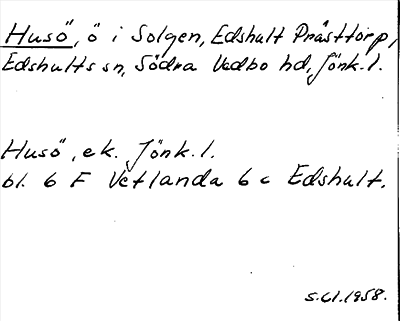 Husö, ö i Solgen, Edshult Prästtorp,
Edshults sn, Södra Vedbo hd, Jönk. l.
Husö, ek. Jönk. l.
bl. 6 F Vetlanda 6 c Edshult.
s. Cl. 1958.